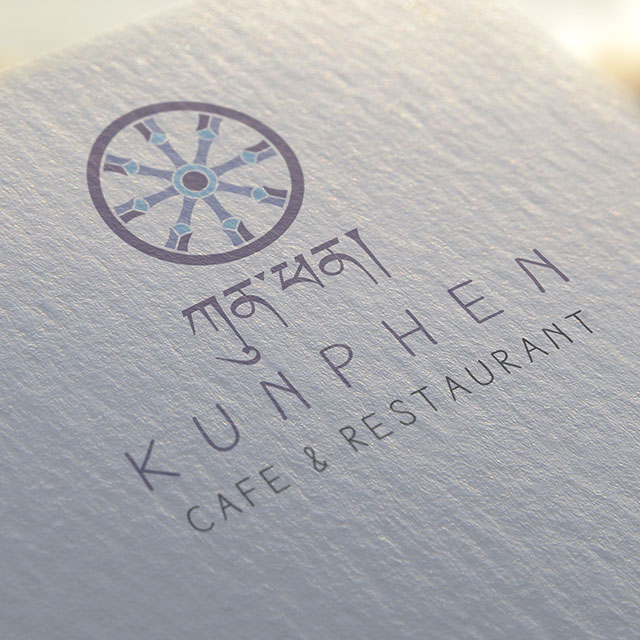 ཀུན་ཕན།
KUNPHEN
CAFE & RESTAURANT